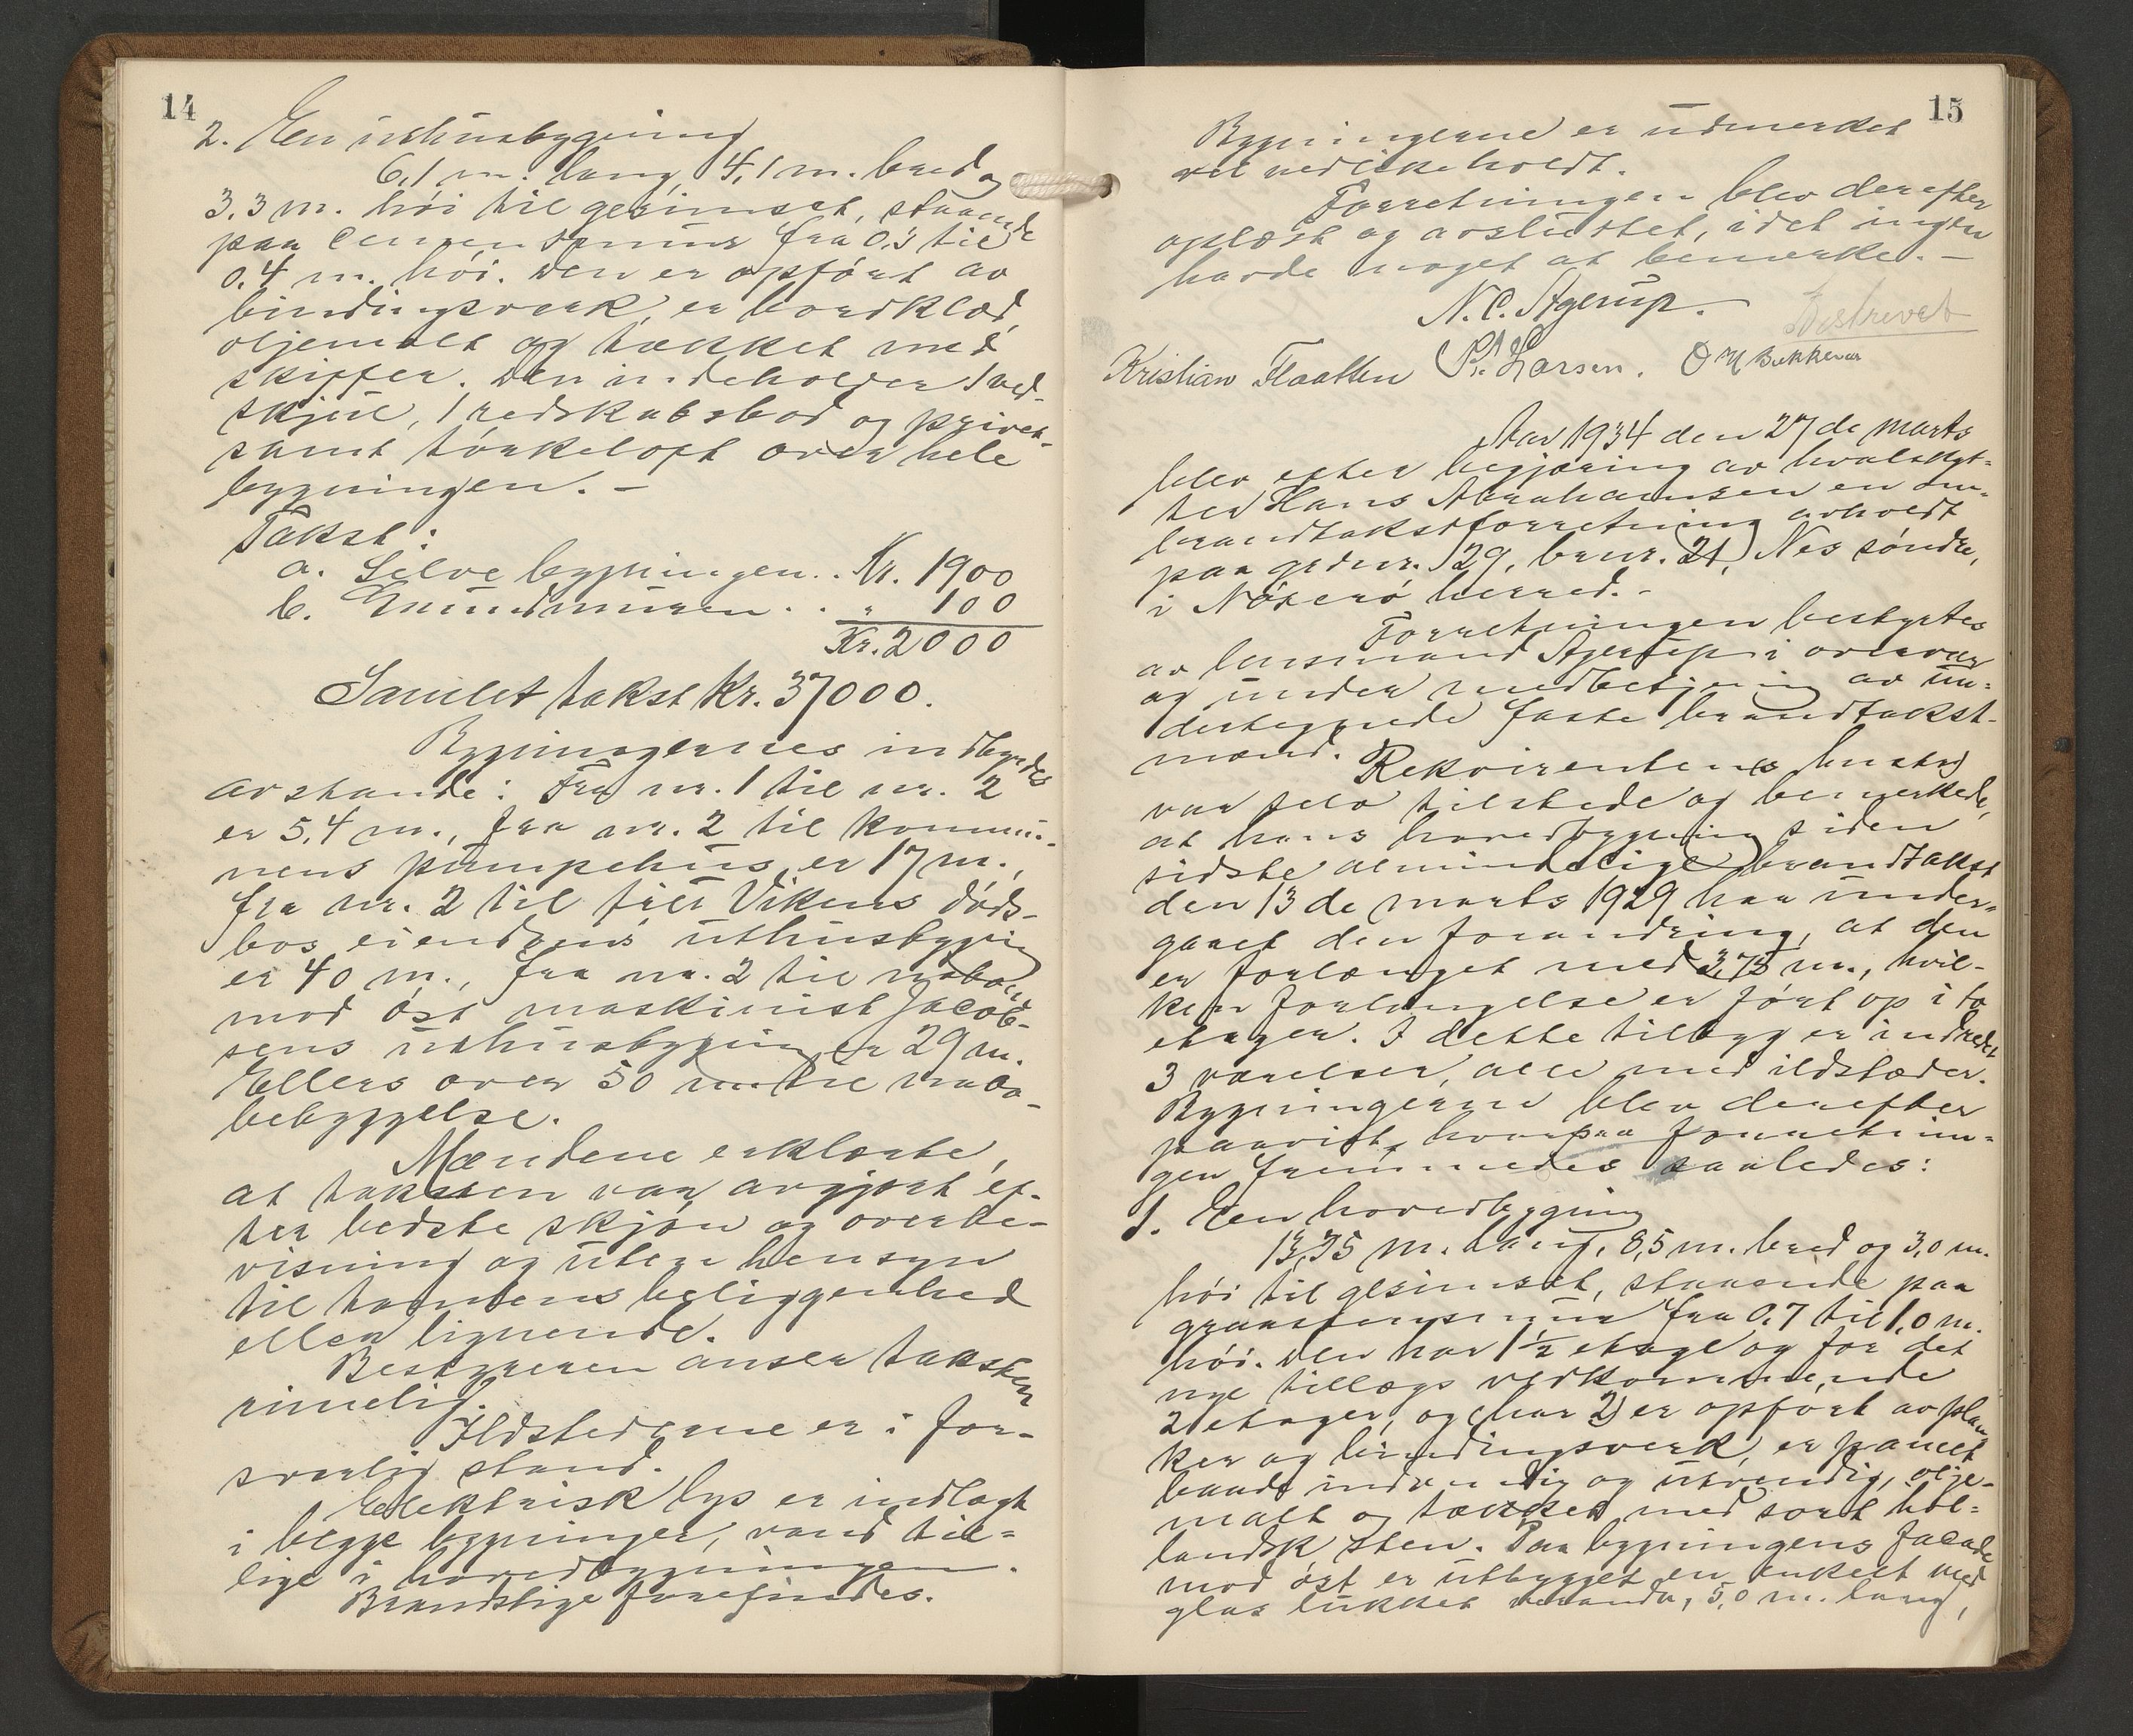 14
2. En uthusbygning
6,1 m. lang, 4,1 m. bred og
3.3 m. höi til gesimset, staaende
paa cementmur fra 0,3 til
0,4 m. höi. Den er opfört av
bindingsverk, er bordklæd,
oljemalt og tækket med
skiffer. Den indeholder 1 ved-
skjul, 1 redskabsbod og privet
samt törkeloft over hele
bygningen. –
Takst:
a. Selve bygningen . . Kr. 1900
b. Grundmuren . . " 100
Kr. 2000
Samlet takst Kr. 37000.
Bygningernes indbyrdes
avstande: Fra nr. 1 til nr. 2
er 5,4 m., fra nr. 2 til kommu-
nens pumpehus er 17 m.,
fra nr. 2 til fru Vikens döds-
bos eiendoms uthusbygning
er 40 m., fra nr. 2 til naboen
mod öst maskinist Jacob-
sens uthusbygning er 29 m.
Ellers over 50 m. til nabo-
bebyggelse.
Mændene erklærte,
at taksten var avgjort ef-
ter bedste skjön og overbe-
visning og uten hensyn
til tomtens beliggenhed
eller lignende.
Bestyreren anser taksten
rimelig.
Ildstederne er i for-
svarlig stand.
Elektrisk lys er indlagt
i begge bygninger, vand til-
lige i hovedbygningen.
Brandstige forefindes.
15
Bygningerne er udmerket
vel vedlikeholdt.
Forretningen blev derefter
oplæst og avsluttet, idet ingen
havde noget at bemerke. –
N. C. Agerup.
Beskrevet
Kristian Flaatten P. Larsen. O M Bakkevar
Aar 1934 den 27 de marts
blev efter begjæring av hvalskyt-
ter Hans Abrahamsen en om-
brandtakstforretning avholdt
paa grdnr. 129, brnr. 21, Nes söndre,
i Nöterö herred. –
Forretningen bestyrtes
av lensmand Agerup i overvær
og under medbetjening av un-
dertegnede faste brandtakst-
mænd.
Rekvirentens hustru
var selv tilstede og bemerkede,
at hans hovedbygning siden
sidste almindelige brandtakst
den 13 de marts 1929 har under-
gaaet den forandring, at den
er forlænget med 3,75 m., hvil-
ken forlængelse er fört op i to
etager. I dette tillæg er indredet
3 værelser, alle med ildstæder.
Bygningerne blev derefter
paavist, hvorpaa forretnin-
gen fremmedes saaledes:
1. En hovedbygning
13,75 m. lang, 8,5 m. bred og 3,0 m.
höi til gesimset, staaende paa
graastensmur fra 0,7 til 1,0 m.
höi. Den har 1 ½ etage og for det
nye tillægs vedkommende
2 etager, og (har 2) er opfört av plan-
ker og bindingsverk, er panelt
baade indvendig og utvendig, olje-
malt og tækket med sort hol-
landsk sten. Paa bygningens facade
mod öst er utbygget en enkelt med
glas lukket veranda, 5,0 m. lang,